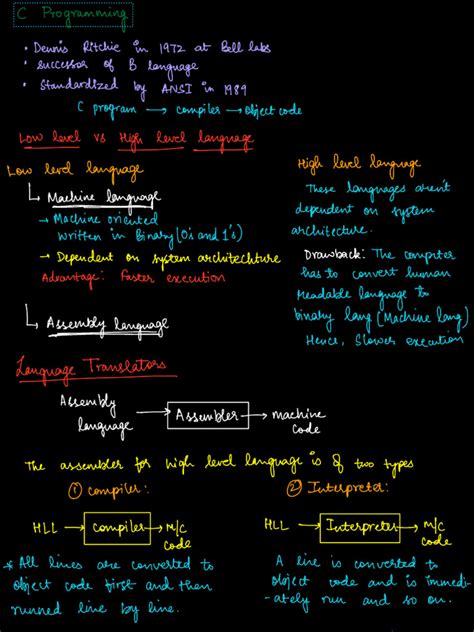 C Programming
• Dennis Ritchie in 1972 at Bell labs
• successor of B language
• Standardized by ANSI in 1989
C program → compiler → Object code
Low level vs High level language
Low level language
Machine language
→ Machine oriented
written in Binary (0's and 1's)
→ Dependent on system architechture
Advantage: Faster execution
Assembly language
High level language
These languages aren't
dependent on system
architecture.
Drawback: The computer
has to convert human
readable language to
binary lang (Machine lang)
Hence, Slower execution
Language Translators
Assembly
language → Assembler → machine
code
The assembler for high level language is of two types
① compiler:
HLL → Compiler → M/C
code
* All lines are converted to
object code first and then
runned line by line.
② Interpreter:
HLL → Interpreter → M/C
code
A line is converted to
object code and is immedi-
ately run and so on.